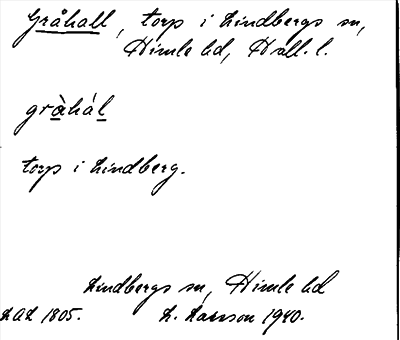 Gråhall, torp i Lindbergs sn,
Himle hd, Hall. l.
gràhál
torp i Lindberg.
Lindbergs sn, Himle hd
LAL 1805. L. Larsson 1940.